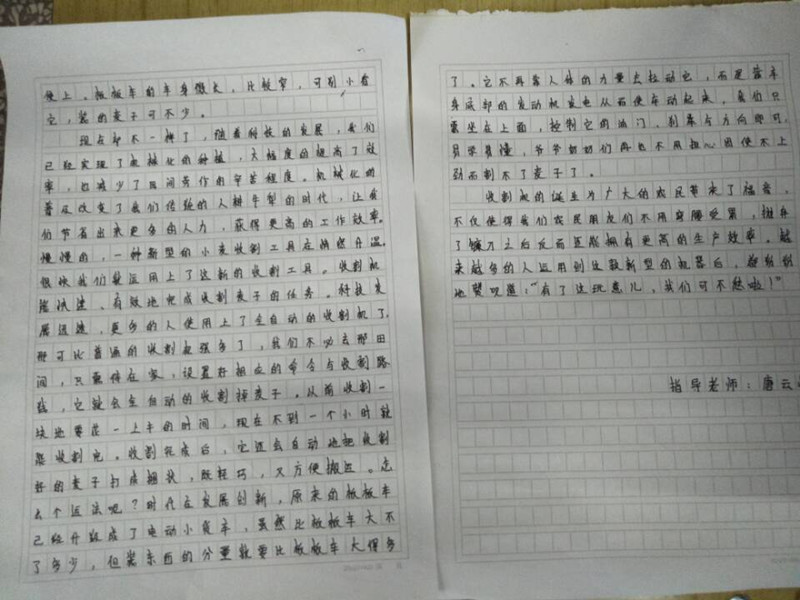 便上。板板车的车身微大,比较窄,可别小看
它,装的麦子可不少。
现在却不一样了,随着科技的发展,我们
已经实现了机械化的种植,大幅度的提高了效
率,也减少了田间劳作的辛苦程度。机械化的
普及改变了我们传统的人耕牛犁的时代,让我
们节省出来更多的人力,获得更高的工作效率。
慢慢的,一种新型的小麦收割工具在悄然升温。
很快我们就运用上了这新的收割工具。收割机
能快速、有效地完成收割麦子的任务。科技发
展迅速,更多的人使用上了全自动的收割机了。
那可比普通的收割机强多了,我们不必去那田
间,只需待在家,设置好相应的命令与收割路
线,它就会全自动的收割掉麦子。从前收割一
块地要花一上午的时间,现在不到一个小时就
能收割完。收割完度后,它还会自动地把收割
好的麦子打成捆状,既轻巧,又方便搬运。怎
么个运法呢?时代在发展创新,原来的板板车
已经升级成了电动小货车,虽然比板板车大不
了多少,但装东西的分量就要比板板车大得多
了。它不再靠人体的力量去拉动它,而是靠车
身底部的发动机发电从而使车动起来。我们只
需坐在上面,控制它的油门、刹车今方向即可。
易学易懂,爷爷奶奶们再也不用担心因使不上
劲而割不了麦子了。
收割机的诞生为广大的农民带来了福音,
不仅使得我们农民朋友们不用弯腰受累,抛弃
了镰刀之后反而还能拥有更高的生产效率。越
来越多的人运用到这款新型的机器后,都纷纷
地赞叹道:“有了这玩意儿,我们可不愁啦!”
指导老师:唐云